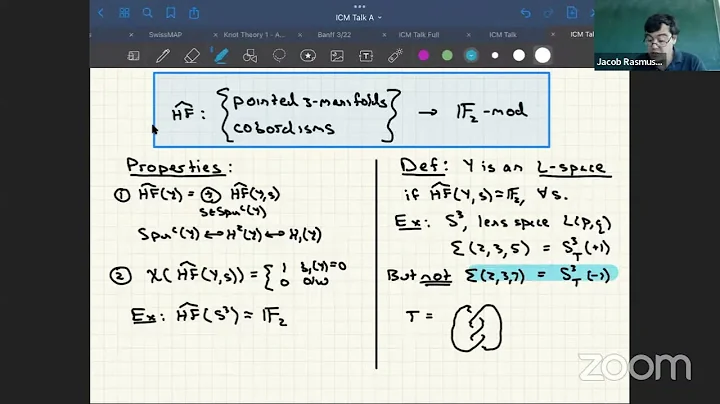 ICM Talk A
SwissMAP
Knot Theory 1 - A...
Banff 3/22
ICM Talk A
ICM Talk Full
ICM Talk
ICM Tal
Jacob Rasmus...
HF̂ : { pointed 3-manifolds
cobordisms } → 𝔽₂-mod
Properties:
① HF̂(Y) = ⊕ HF̂(Y,s)
s∈Spinᶜ(Y)
Spinᶜ(Y) ↔ H²(Y) ↔ H₁(Y)
② χ(HF̂(Y,s)) = { 1 b₁(Y)=0
0 o/w
Ex: HF̂(S³) = 𝔽₂
Def: Y is an L-space
if HF̂(Y,s) = 𝔽₂, ∀s.
Ex: S³, lens space L(p,q)
Σ(2,3,5) = S³_T(+1)
But not Σ(2,3,7) = S³_T(-1)
T =
zoom